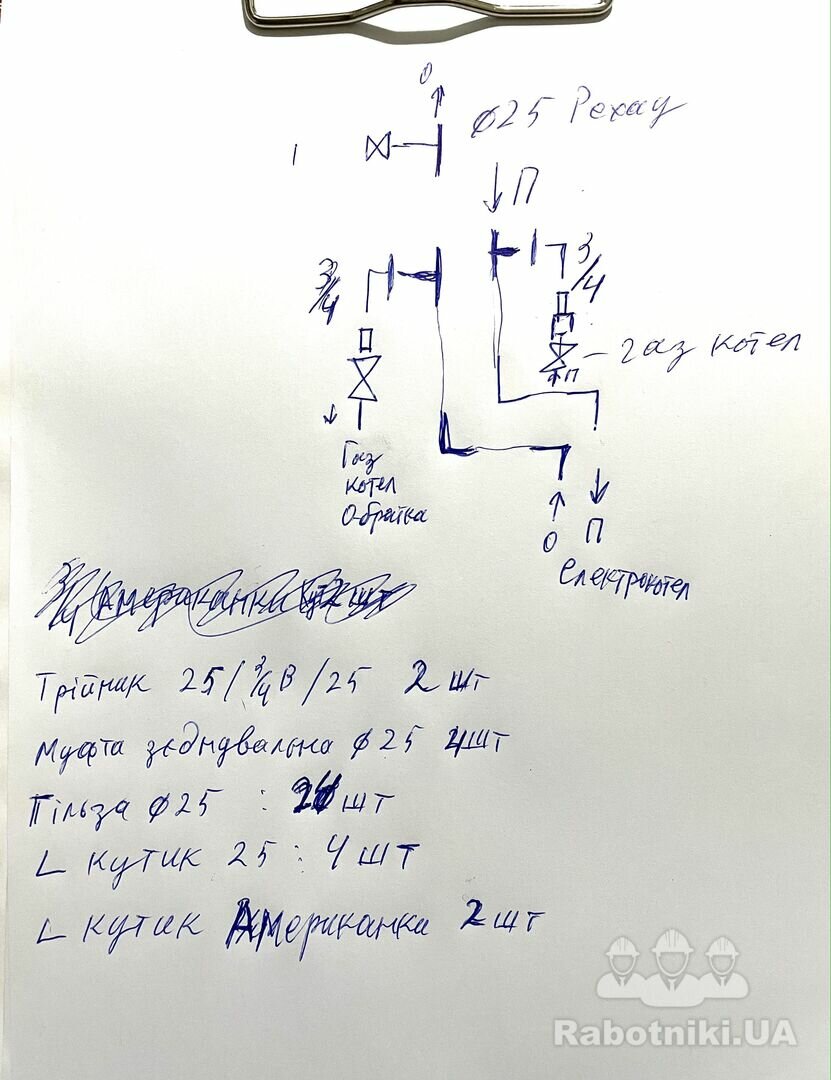 О
ø25 Рехау
П
3/4
3/4
газ котел
П
Газ
котел
О-братка
О П
електрокотел
3/4 Американка 2 шт
Трійник 25/3/4В/25 2 шт
муфта зєднувальна ø25 4шт
Гільза ø25 : шт
L кутик 25 : 4 шт
L кутик Американки 2 шт
Rabotniki.UA